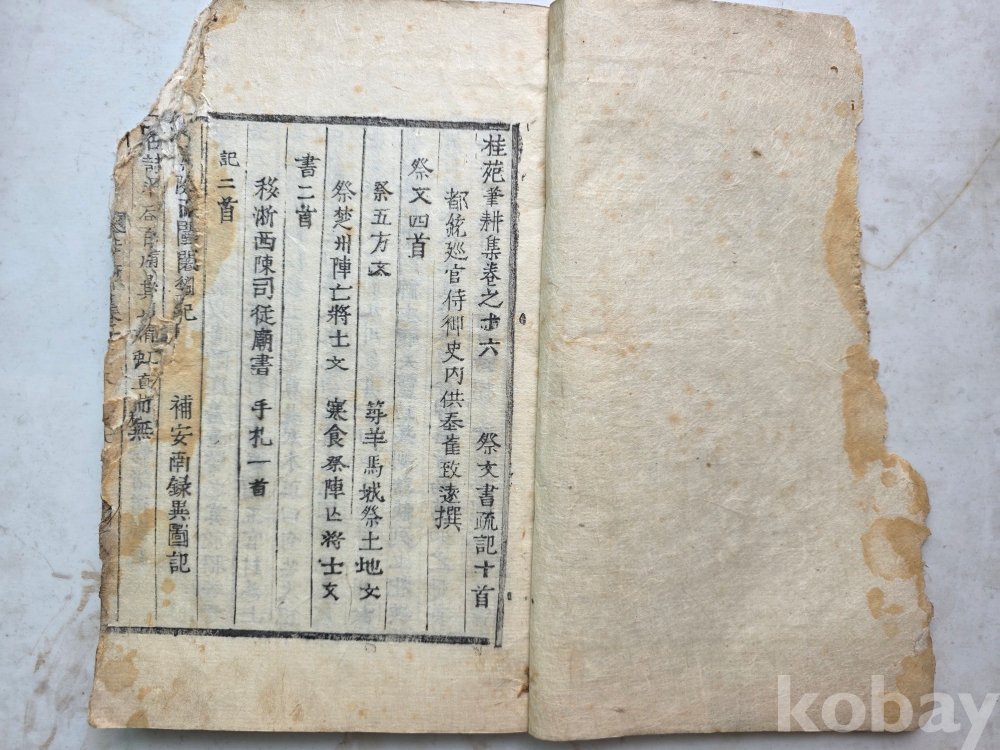 桂苑筆耕集卷之十六 祭文書疏記十首
都統廵官侍御史內供奉崔致遠撰
祭文四首
祭五方文 築羊馬城祭土地文
祭楚州陣亡將士文 寒食祭陣亡將士文
書二首
移浙西陳司徒廟書 手札一首
記二首
記 補安南録異圖記
直而無
kobay